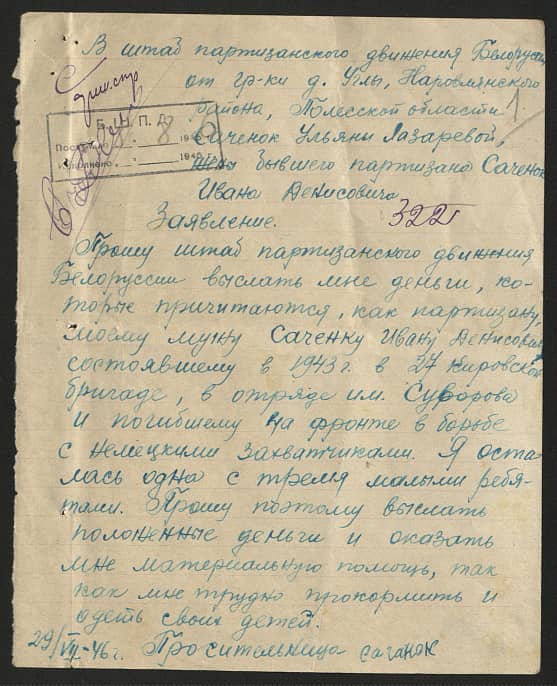 В штаб партизанского движения Белоруссии
от гр-ки д. Углы, Наровлянского
района, Полесской области
Саченок Ульяни Лазаревой,
жены бывшего партизана Саченок
Ивана Денисовича
Заявление.
322
Б. Ш. П. Д.
194
194
Прошу штаб партизанского движения
Белоруссии выслать мне деньги, ко-
торые причитаются, как партизану,
моему мужу Саченку Ивану Денисович
состоявшему в 1943 г. в 27 Кировской
бригаде, в отряде им. Суворова
и погибшему на фронте в борьбе
с немецкими захватчиками. Я оста
лась одна с тремя малыми ребя-
тами. Прошу поэтому выслать
положенные деньги и оказать
мне материальную помощь, так
как мне трудно прокормить и
одеть своих детей.
29/VII-46 г. Просительница саганок